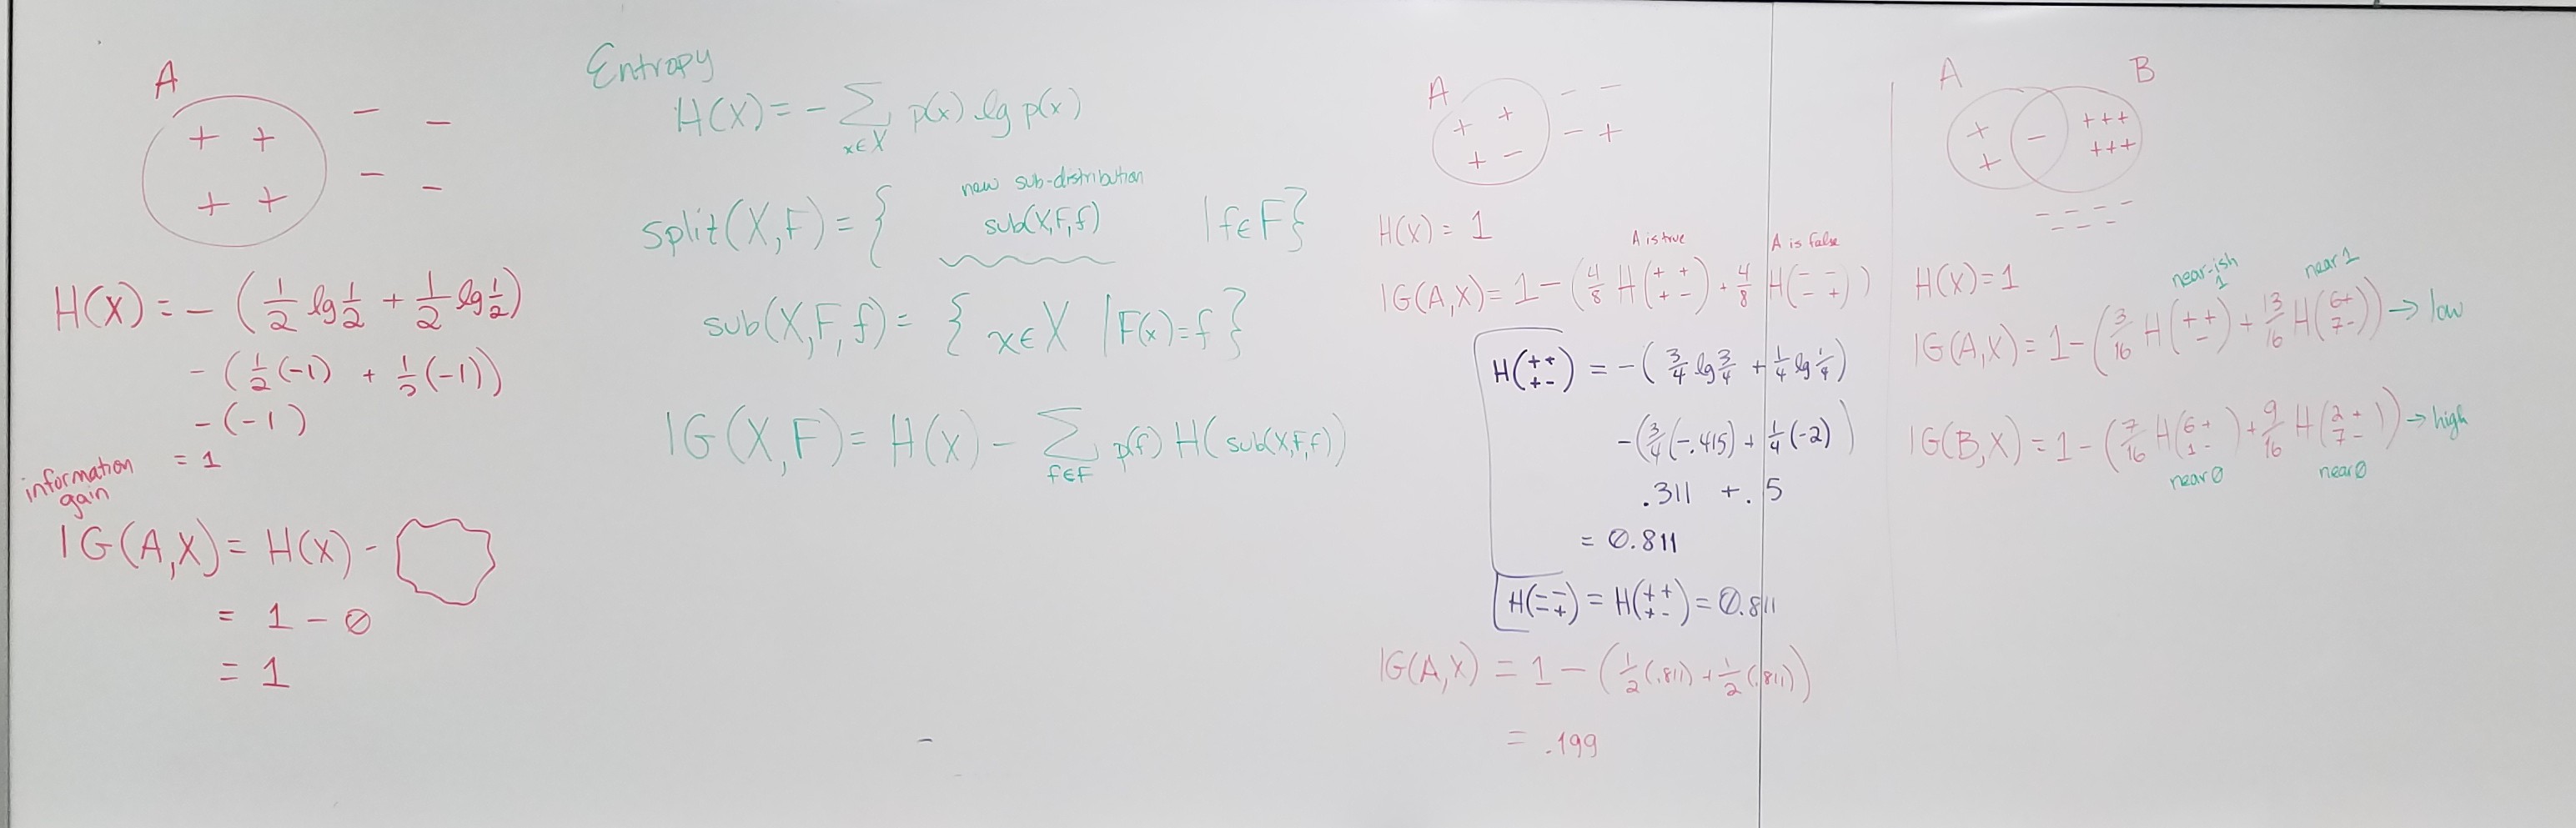 A
+ + - -
+ + - -
H(X) = - (1/2 lg 1/2 + 1/2 lg 1/2)
- (1/2 (-1) + 1/2 (-1))
- (-1)
= 1
information gain
IG(A,X) = H(X) -
= 1 - 0
= 1
Entropy
H(X) = - ∑ x∈X p(x) lg p(x)
new sub-distribution
split(X,F) = { sub(X,F,f) | f∈F }
sub(X,F,f) = { x∈X | F(x)=f }
IG(X,F) = H(X) - ∑ f∈F p(f) H(sub(X,F,f))
A
+ + - -
+ - - +
H(X) = 1
A is true A is false
IG(A,X) = 1 - (4/8 H(+ + + -) + 4/8 H(- - - +))
H(+ + + -) = - (3/4 lg 3/4 + 1/4 lg 1/4)
- (3/4 (-.415) + 1/4 (-2))
.311 + .5
= 0.811
H(- - - +) = H(+ + + -) = 0.811
IG(A,X) = 1 - (1/2 (.811) + 1/2 (.811))
= .199
A B
+ - +++
+ +++
- - - -
- - - -
H(X) = 1
near-ish 1 near 1
IG(A,X) = 1 - (3/16 H(+ + -) + 13/16 H(6+ 7-)) → low
IG(B,X) = 1 - (7/16 H(6+ 1-) + 9/16 H(2+ 7-)) → high
near 0 near 0